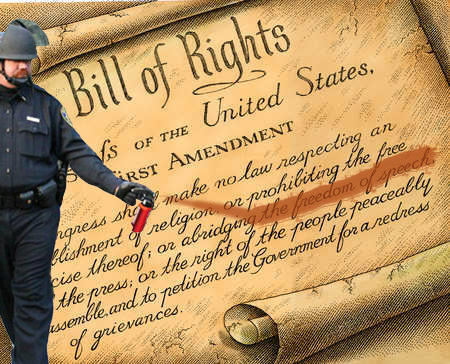 Bill of Rights
ſs OF THE United States,
FIRST AMENDMENT
ngress shall make no law respecting an
blishment of religion, or prohibiting the free
cise thereof; or abridging the freedom of speech,
the press; or the right of the people peaceably
assemble, and to petition the Government for a redress
of grievances.